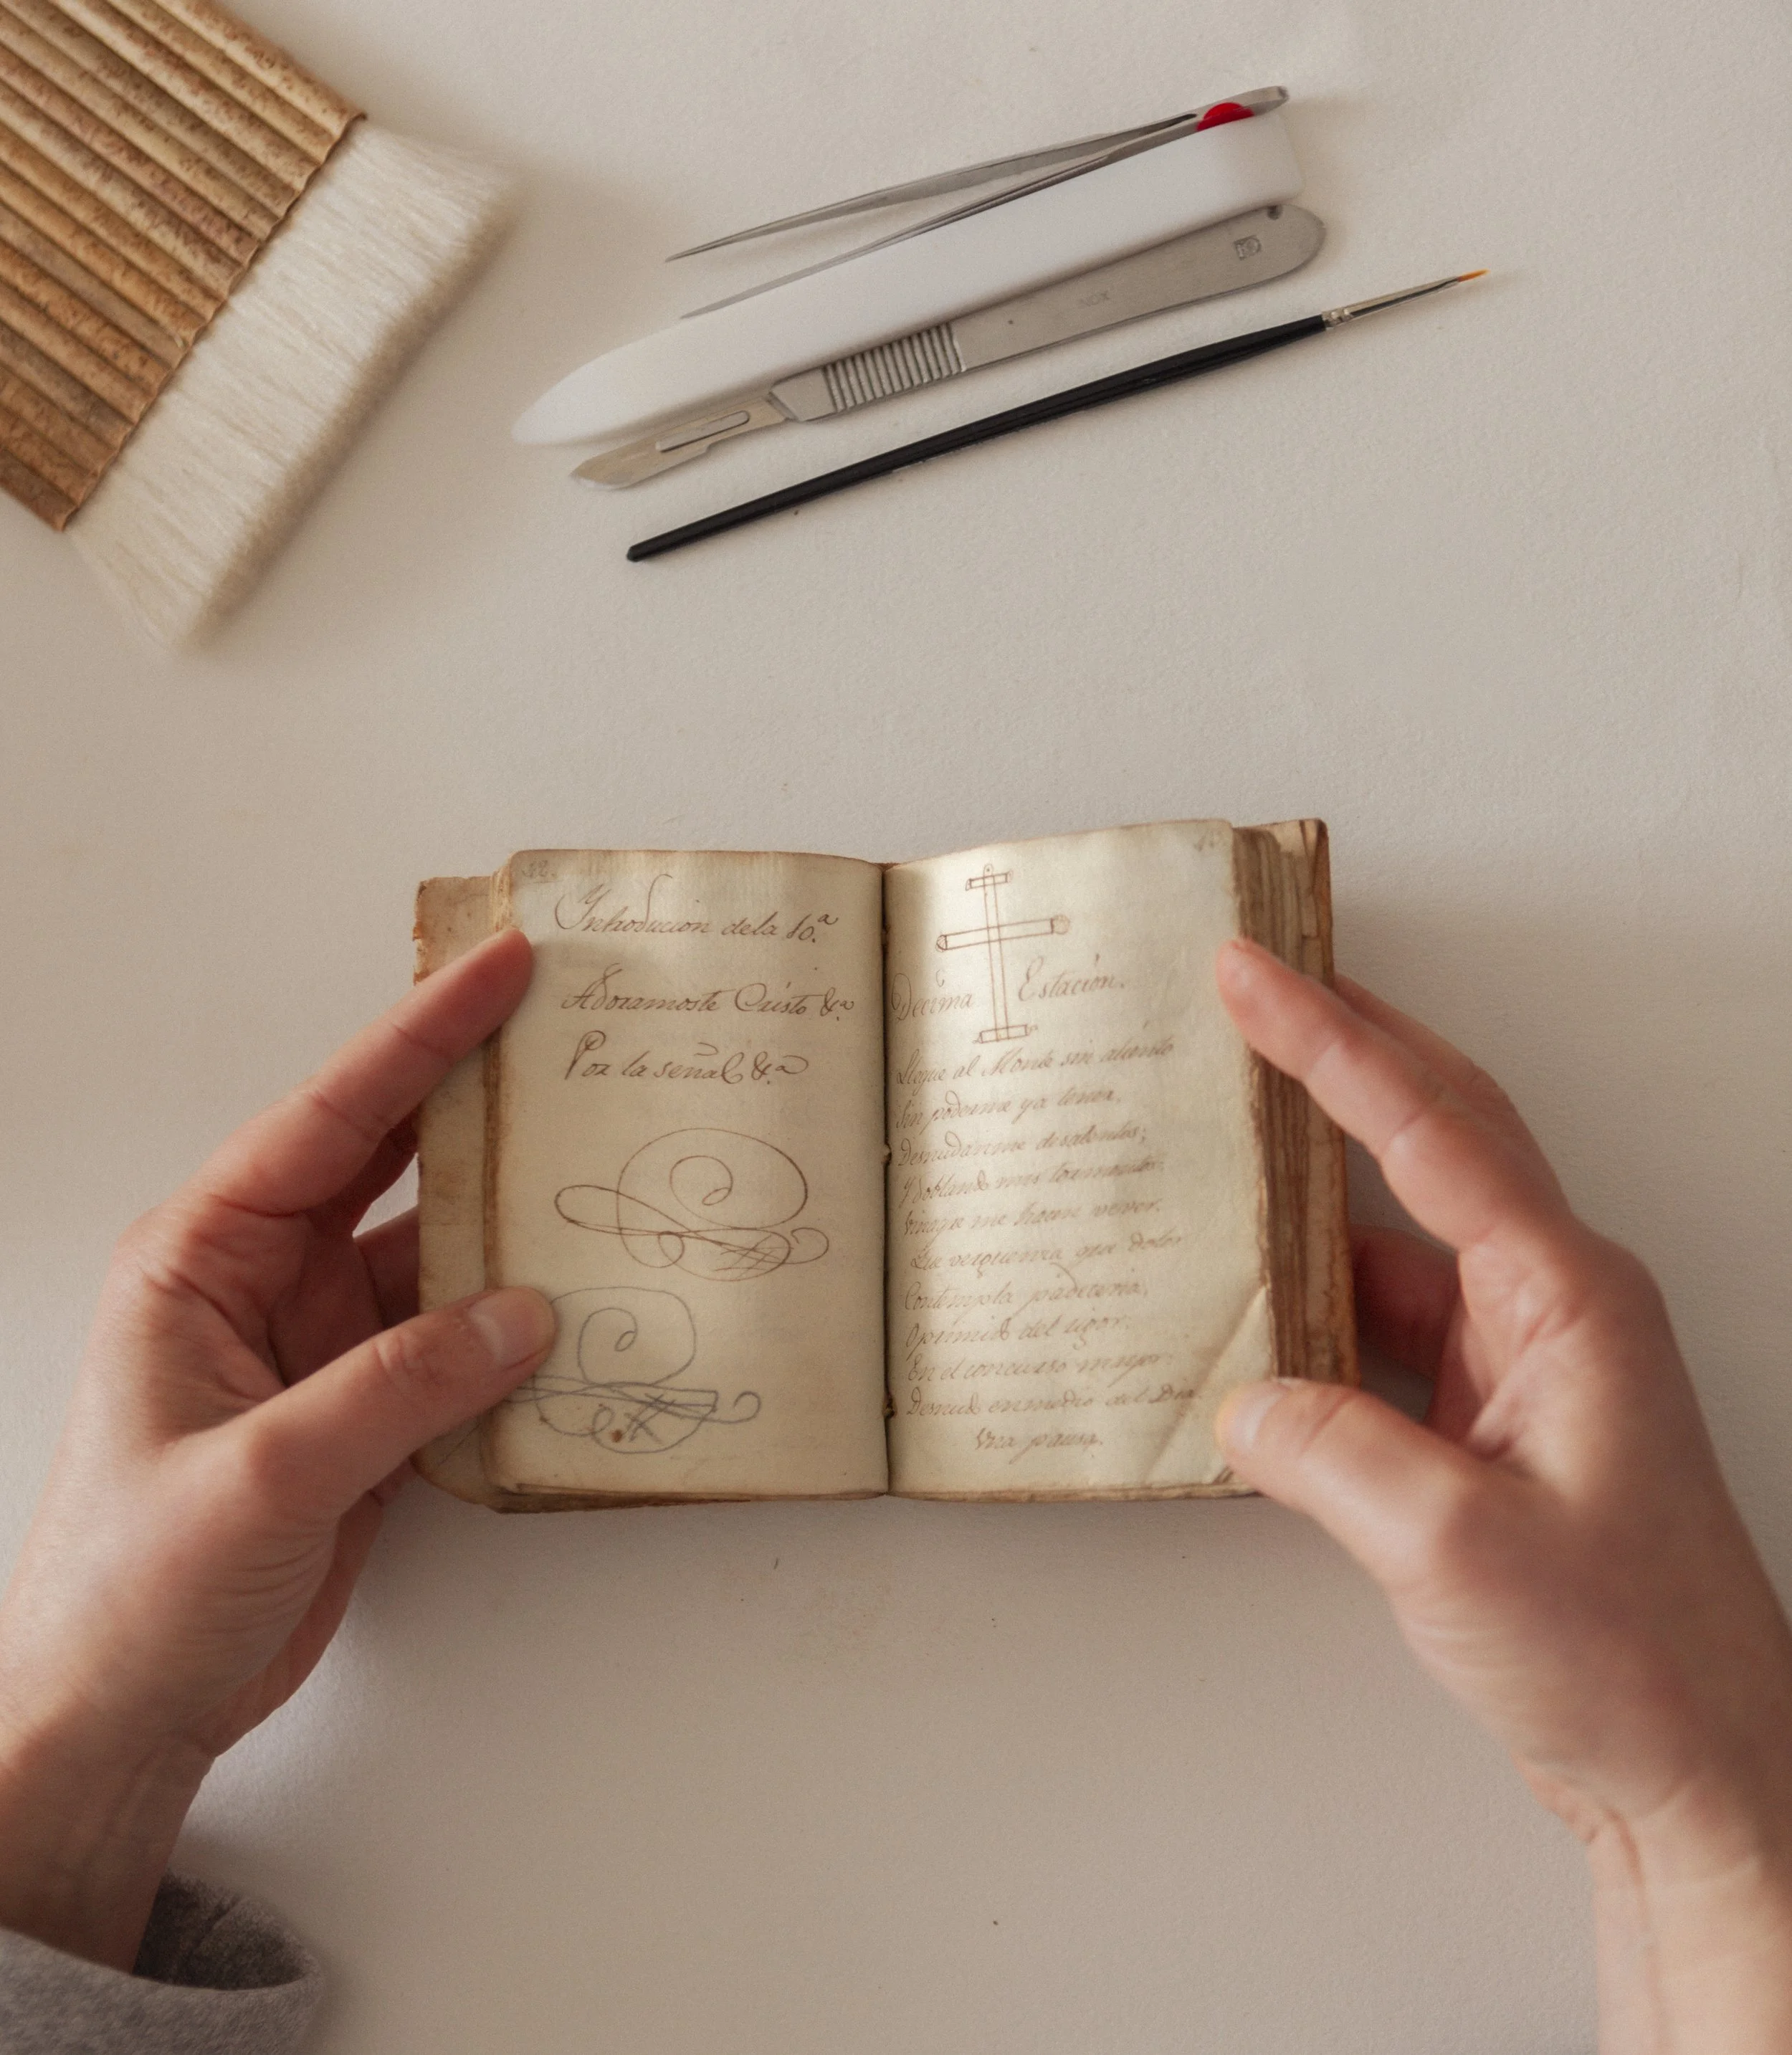 INOX
Introducion dela 10.ª
Adoramoste Cristo &ª
Por la señal &ª
Decima Estación.
Llegue al Monte sin aliento
Sin poderme ya tener,
Desnudaronme
Y doblando mis tormentos
Vinagre me hacen vever.
Que verguenza que dolor
Contempla padeceria,
Oprimido del rigor.
En el concurso mayor
Desnudo enmedio del Dia.
Una pausa.